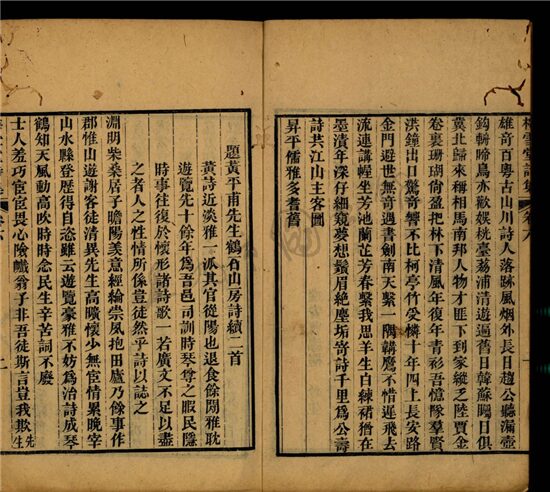 雄奇百粵古山川詩人落跡風烟外長日趙公聽漏壺
鈎輈啼鳥亦歡娱桄臺荔浦清遊遍舊日韓蘇騶日俱
冀北歸來稱相馬南邦人物才匪下到家縱乏陸賈金
卷裏珊瑚尙盈把林下清風年復年青衫吾憶隊羣賢
洪鐘出口驚奇響不比柯亭竹受憐十年四上長安路
金門避世無奇遇書劍南天繫一隅鞲鷹不惜遲飛去
流連講幄坐芳池蘭芷芳春繫我思羊生白練裙猶在
墨瀆年深仔細窺夢想鬚眉絶塵垢寄詩千里爲公壽
詩共江山主客圖
昇平儒雅多耆舊
題黃平甫先生鶴石山房詩續二首
黃詩近淡雅一派其官從陽也退食餘閒雅耽
遊覽先十餘年爲吾邑司訓時琴尊之暇民隱
時事往復於懷形諸詩歌一若廣文不足以盡
之者人之性情所係豈徒然乎詩以誌之
淵明柴桑居子瞻陽羨意經綸崇夙抱田廬乃餘事作
郡惟山遊謝客徒清異先生高曠懷少無宦情累晚宰
山水縣登歷得自恣雖云遊覽豪雅不妨爲治詩成琴
鶴知天風動高吹時時念民生辛苦詞不廢
士人羞巧宦宦畏心險巇翁子非吾徒斯言豈我欺先生